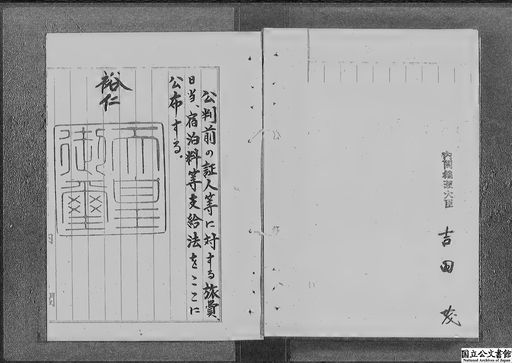 内閣総理大臣
吉田茂
公判前の証人等に対する旅費、
日当、宿泊料等支給法をここに
公布する。
裕仁
天皇
御璽
国立公文書館
National Archives of Japan